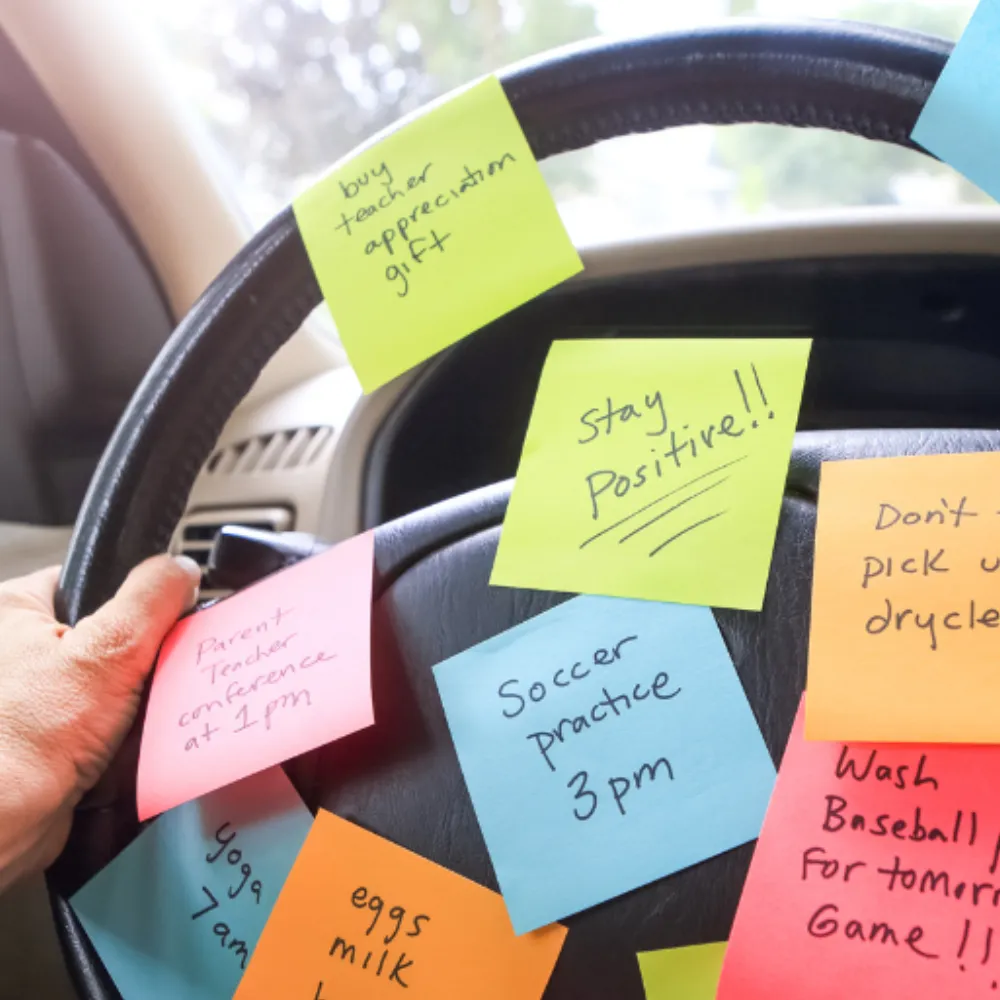 buy
teacher
appreciation
gift
Stay
Positive!!
Parent
Teacher
conference
at 1pm
Soccer
practice
3pm
Don't
pick
Wash
Baseball
For
Game!!
yoga
7am
eggs
milk